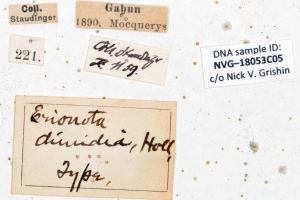 Coll.
Staudinger
Gabun
1890. Mocquerys
221.
Coll. Staudinger
DNA sample ID:
NVG–18053C05
c/o Nick V. Grishin
Erionota
dimidia, Holl,
Type,